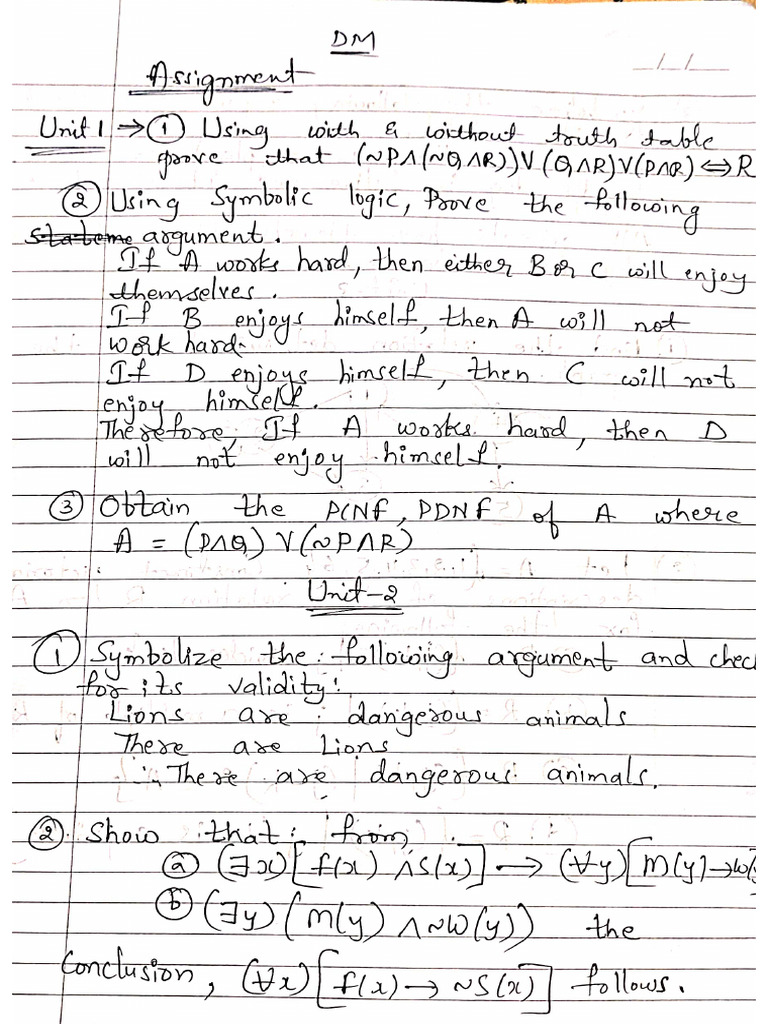 DM
Assignment
Unit 1 → ① Using with & without truth table
prove that (~P∧(~Q∧R))∨(Q∧R)∨(P∧R) ⇔ R
② Using Symbolic logic, Prove the following
stateme argument.
If A works hard, then either B or C will enjoy
themselves.
If B enjoys himself, then A will not
work hard.
If D enjoys himself, then C will not
enjoy himself.
Therefore, If A works hard, then D
will not enjoy himself.
③ Obtain the PCNF, PDNF of A where
A = (P∧Q) ∨ (~P∧R)
Unit-2
① Symbolize the following argument and chec
for its validity:
Lions are dangerous animals
There are Lions
∴ There are dangerous animals.
② Show that from
ⓐ (∃x)[f(x) ∧ S(x)] → (∀y)[M(y) → W(
ⓑ (∃y)(M(y) ∧ ~W(y)) the
Conclusion, (∀x)[f(x) → ~S(x)] follows.